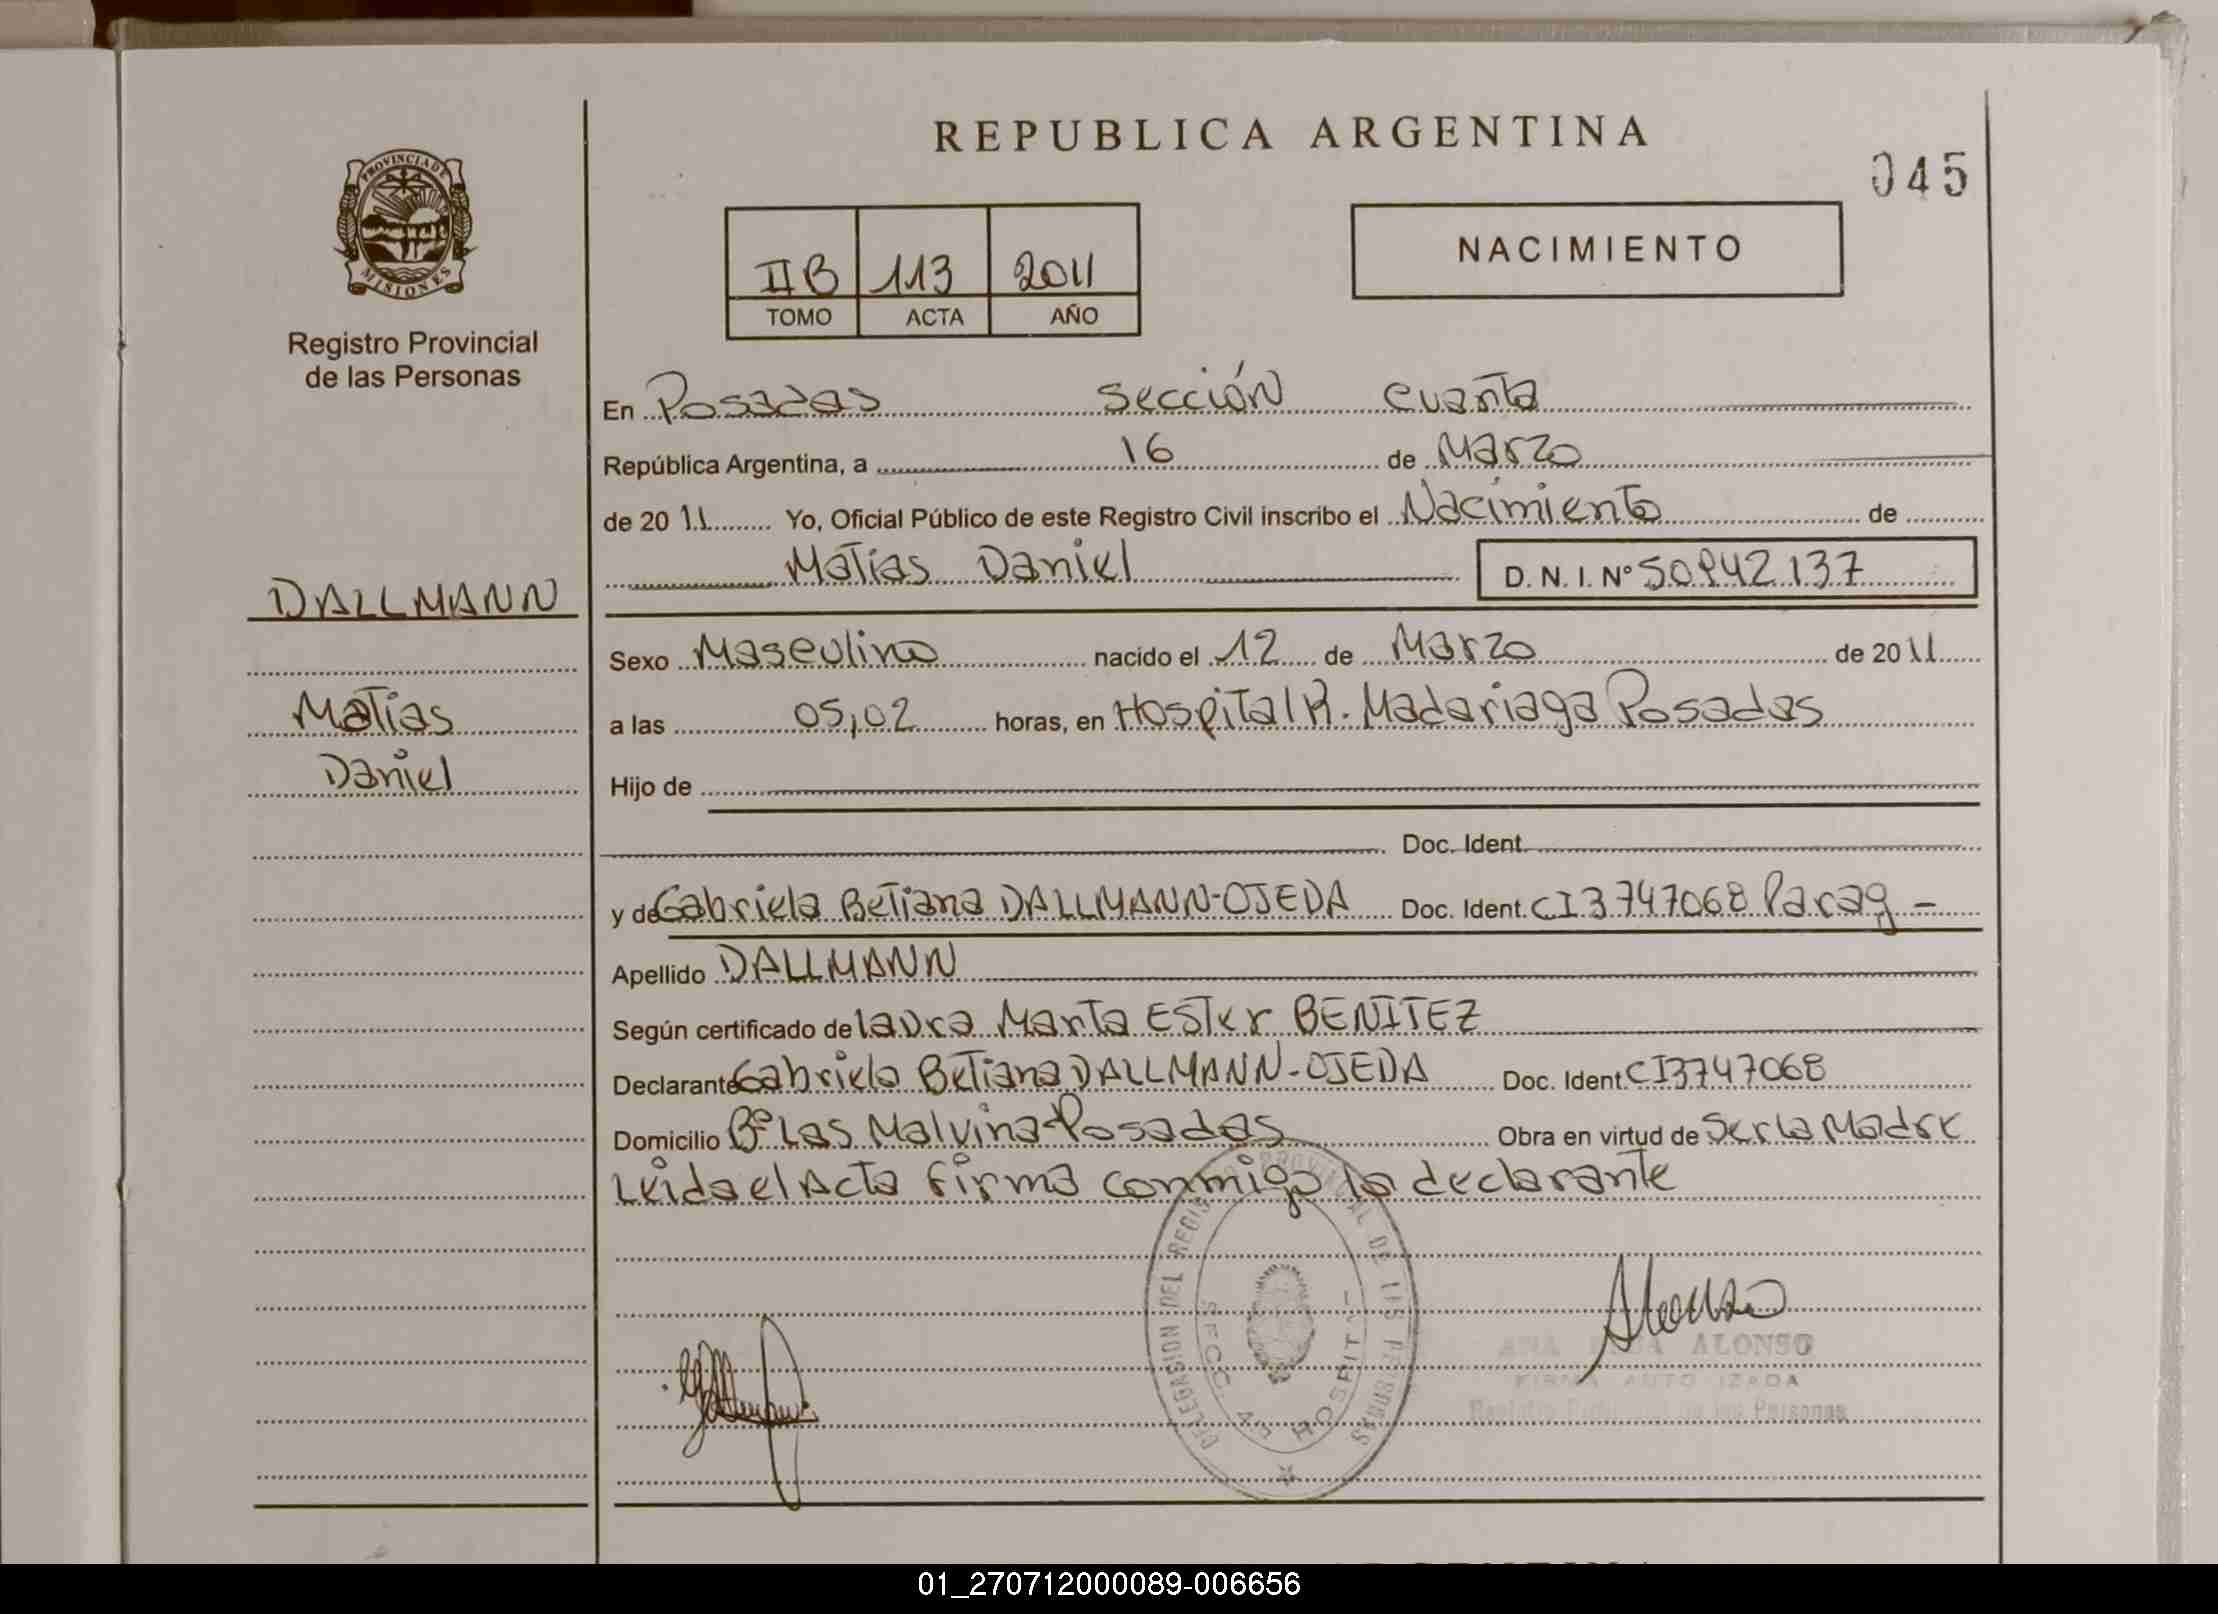 REPUBLICA ARGENTINA
045
PROVINCIA DE
MISIONES
Registro Provincial
de las Personas
II B 113 2011
TOMO ACTA AÑO
NACIMIENTO
En Posadas Sección Cuarta
República Argentina, a 16 de Marzo
de 2011 Yo, Oficial Público de este Registro Civil inscribo el Nacimiento de
Matías Daniel D. N. I. Nº 50.942.137
DALLMANN
Matías
Daniel
Sexo Masculino nacido el 12 de Marzo de 2011
a las 05,02 horas, en Hospital R. Madariaga Posadas
Hijo de
Doc. Ident.
y de Gabriela Betiana DALLMANN-OJEDA Doc. Ident. CI 3747068 Parag -
Apellido DALLMANN
Según certificado de Laura Marta Ester BENITEZ
Declarante Gabriela Betiana DALLMANN-OJEDA Doc. Ident CI3747068
Domicilio Bº Las Malvina-Posadas Obra en virtud de Ser la Madre
Leida el Acta firma conmigo la declarante
DELEGACION DEL REGISTRO PROVINCIAL DE LAS PERSONAS
SECC. 4ª HOSPITAL
Alonso
ANA ALONSO
FIRMA AUTORIZADA
Registro Provincial de las Personas
01_270712000089-006656